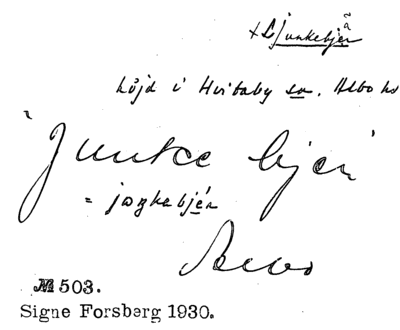 +Ljunkebjer
höjd i Hvitaby sn. Albo hd
"Junke bjer"
= joŋkebjér
№ 503.
Signe Forsberg 1930.